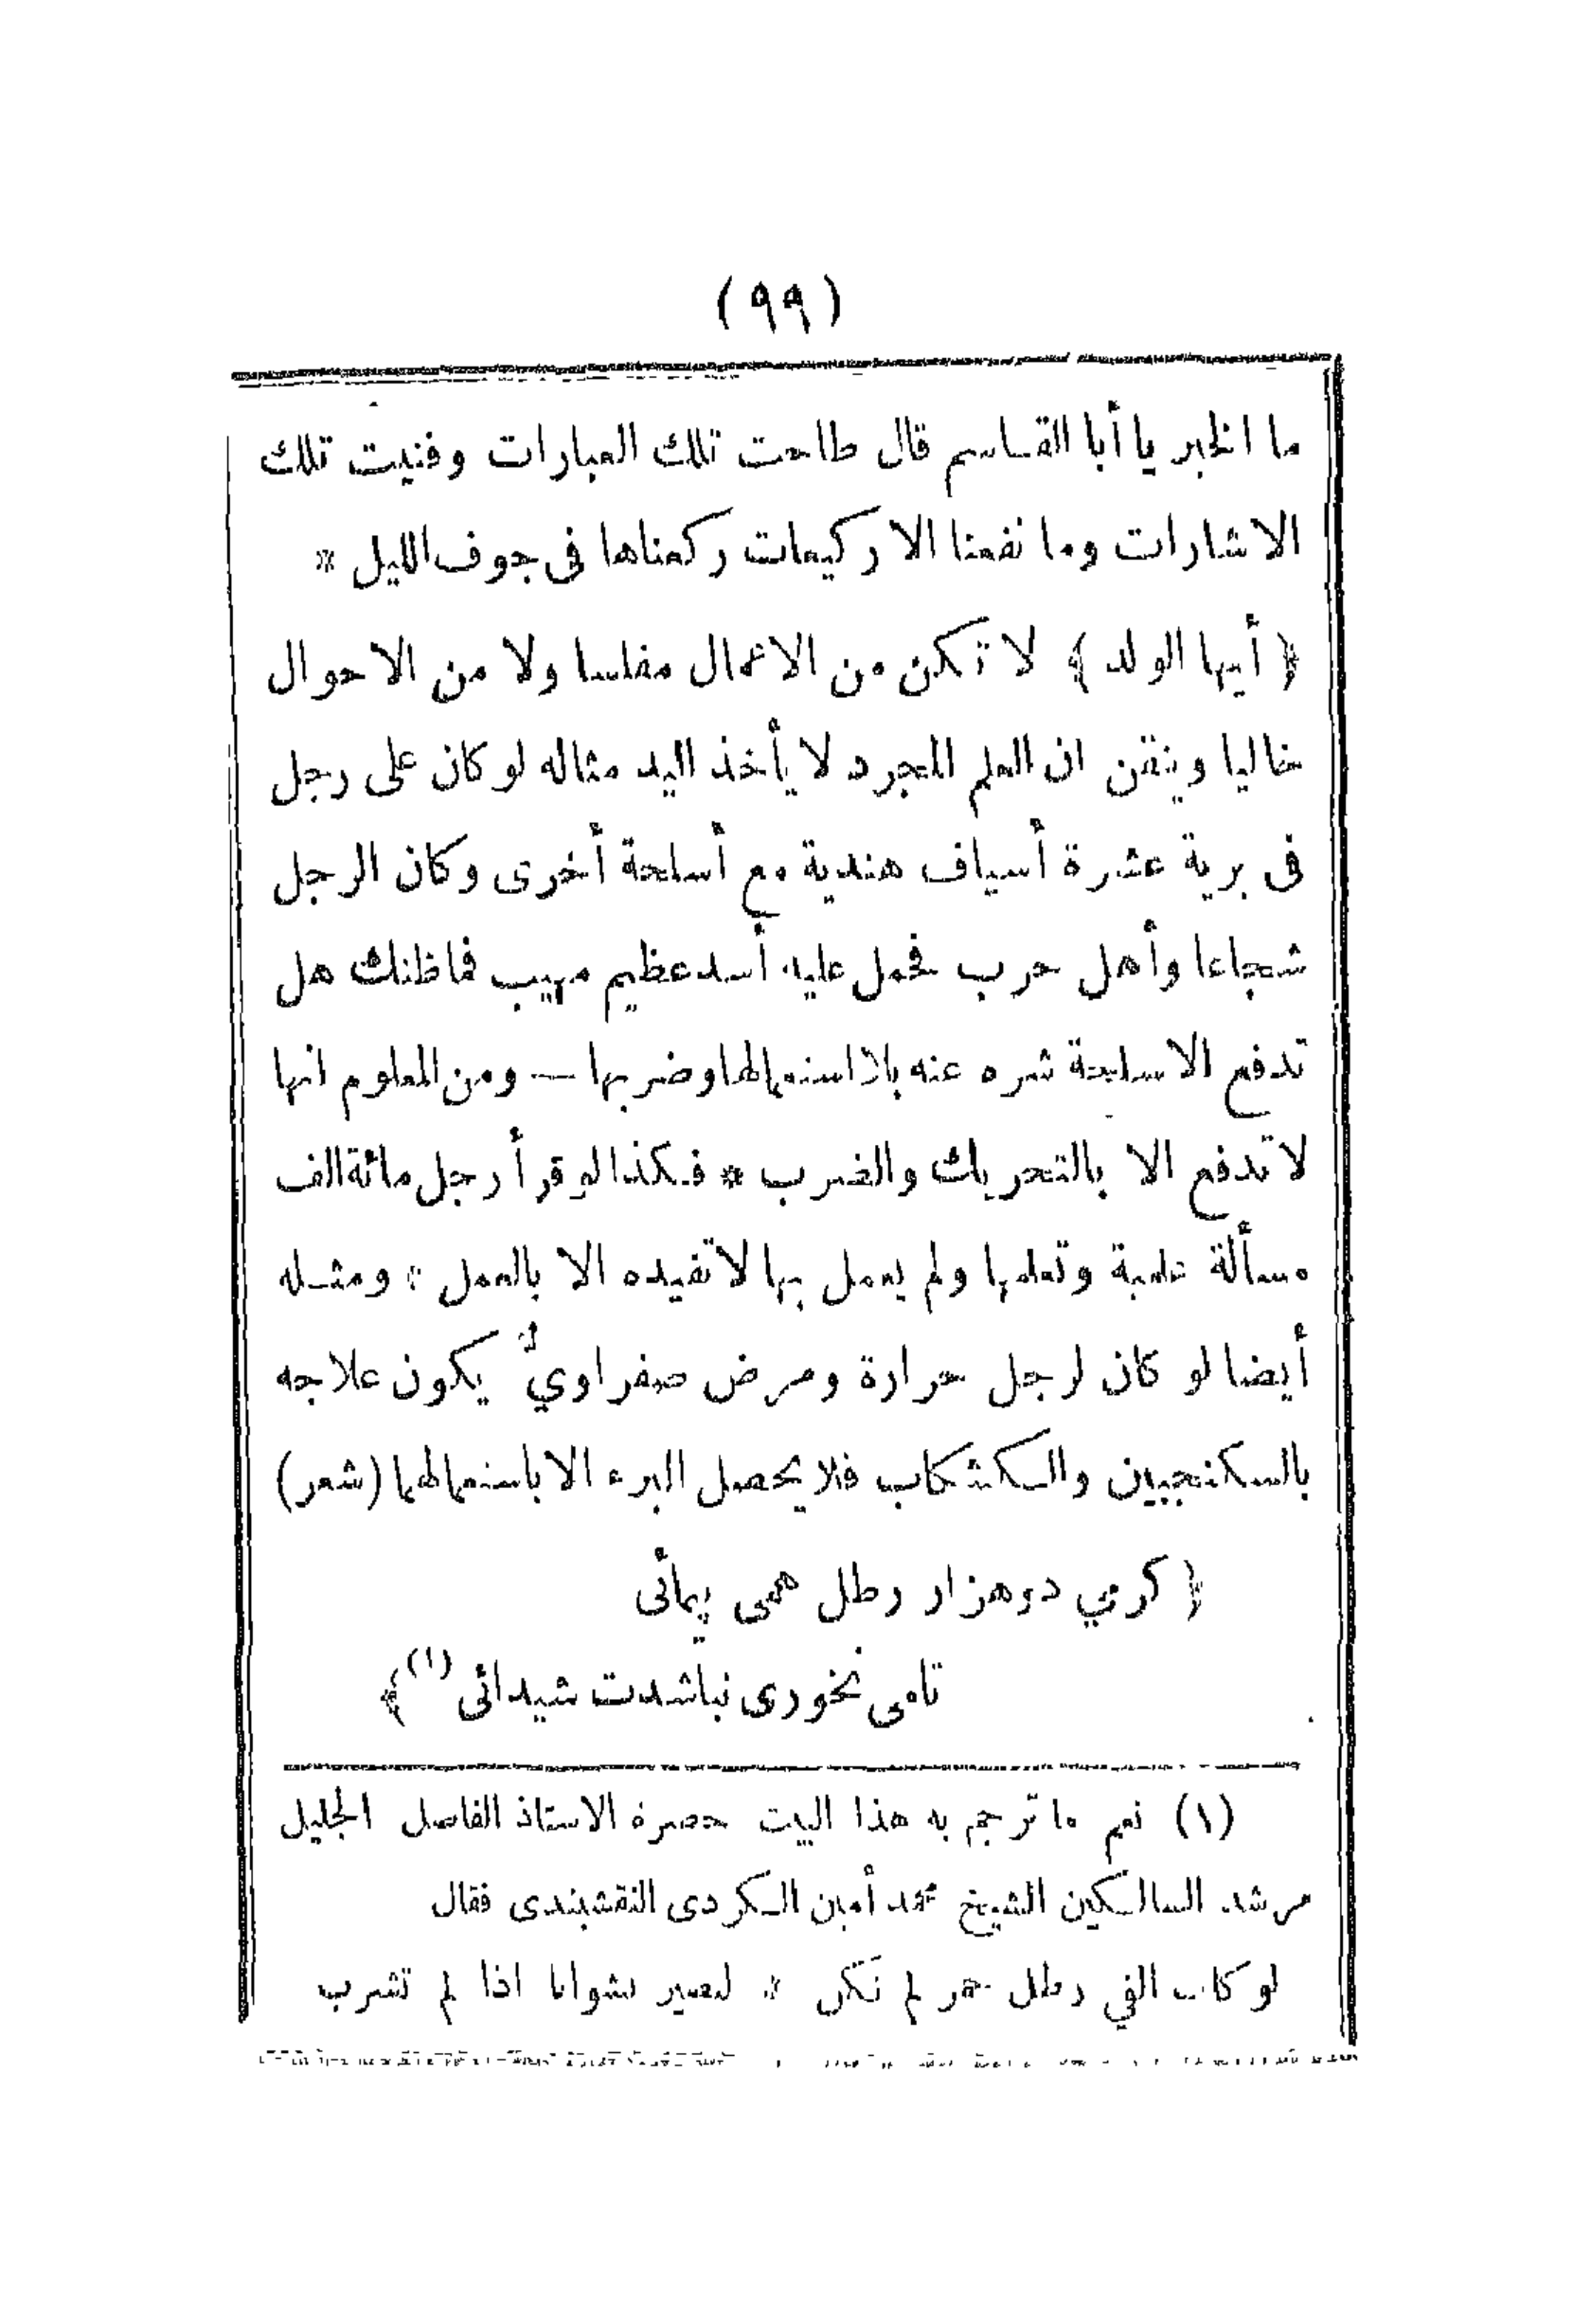 (٩٩)
ما الخبر يا أبا القاسم قال طاحت تلك العبارات وفنيت تلك
الاشارات وما نفعنا الا ركيعات ركعناها فى جوف الليل *
﴿ أيها الولد ﴾ لا تكن من الاعمال مفلسا ولا من الاحوال
خاليا وتيقن ان العلم المجرد لا يأخذ اليد مثاله لو كان على رجل
فى برية عشرة أسياف هندية مع أسلحة أخرى وكان الرجل
شجاعا وأهل حرب فحمل عليه أسد عظيم مهيب فما ظنك هل
تدفع الاسلحة شره عنه بلا استعمالها وضربها — ومن المعلوم انها
لا تدفع الا بالتحريك والضرب * فكذا لو قرأ رجل مائة الف
مسألة علمية وتعلمها ولم يعمل بها لا تفيده الا بالعمل * ومثله
أيضا لو كان لرجل حرارة ومرض صفراويٌّ يكون علاجه
بالسكنجبين والكشكاب فلا يحصل البرء الا باستعمالهما (شعر)
﴿ كرمي دوهزار رطل همى پيمائى
تامى نخورى نباشدت شيدائى (١) ﴾
(١) نعم ما ترجم به هذا البيت حضرة الاستاذ الفاضل الجليل
مرشد السالكين الشيخ محمد أمين الكردى النقشبندى فقال
لو كلت الفي رطل خمر لم تكن * لتصير نشوانا اذا لم تشرب